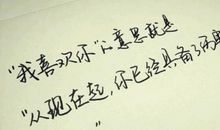 “我喜欢你”的意思就是
“从现在起，你已经具备了伤害
”